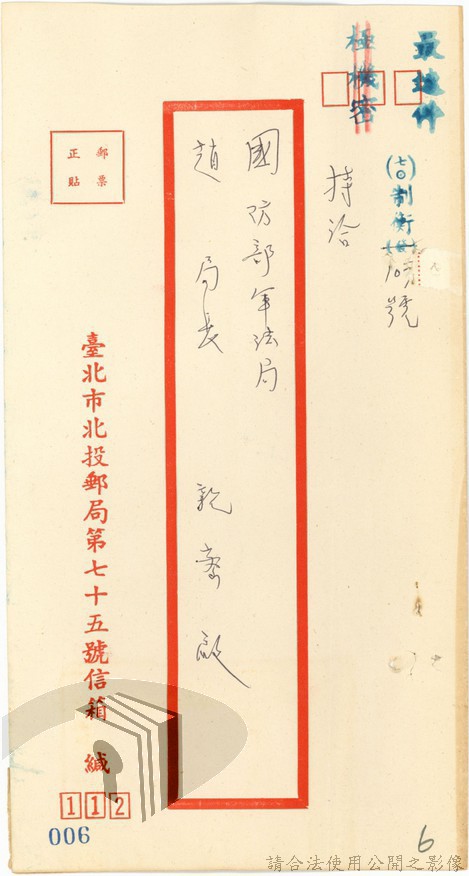 最速件
極機密
(七〇)制衡
105號
持洽
國防部軍法局
趙 局長 親啟
郵票
正貼
臺北市北投郵局第七十五號信箱 緘
112
006
6
請合法使用公開之影像